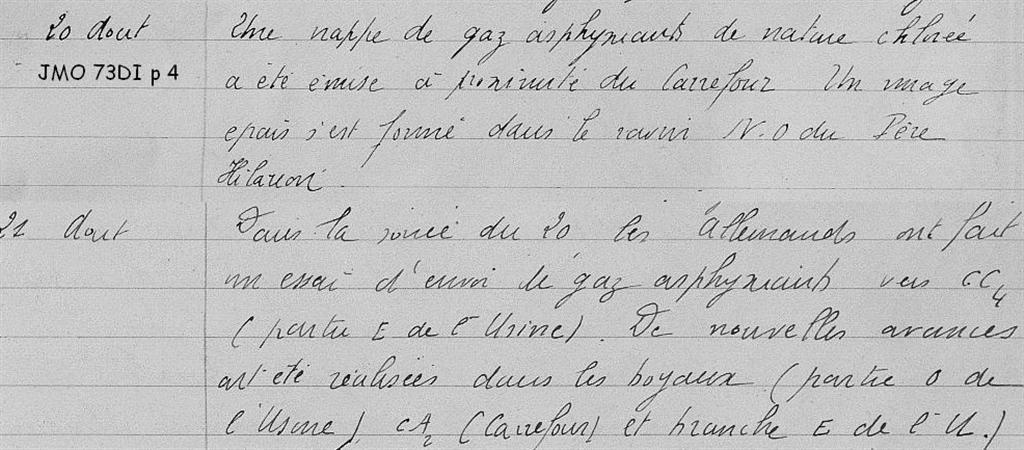 20 Aout Une nappe de gaz asphyxiants de nature chlorée
JMO 73DI p 4 a été émise à proximité du Carrefour Un nuage
epais s'est formé dans le ravin N.O du Père
Hilarion.
21 Aout Dans la soirée du 20 les Allemands ont fait
un essai d'envoi de gaz asphyxiants vers CC4
(partie E de l'Usine). De nouvelles avances
ont été réalisées dans les boyaux (partie O de
l'Usine), CA2 (Carrefour) et branche E de l'U.)